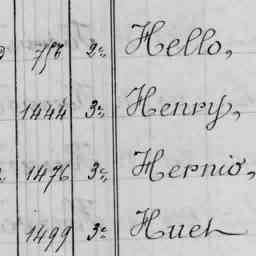 758 2e Hello,
1444 3e Henry,
1476 3e Hernio,
1499 3e Huet